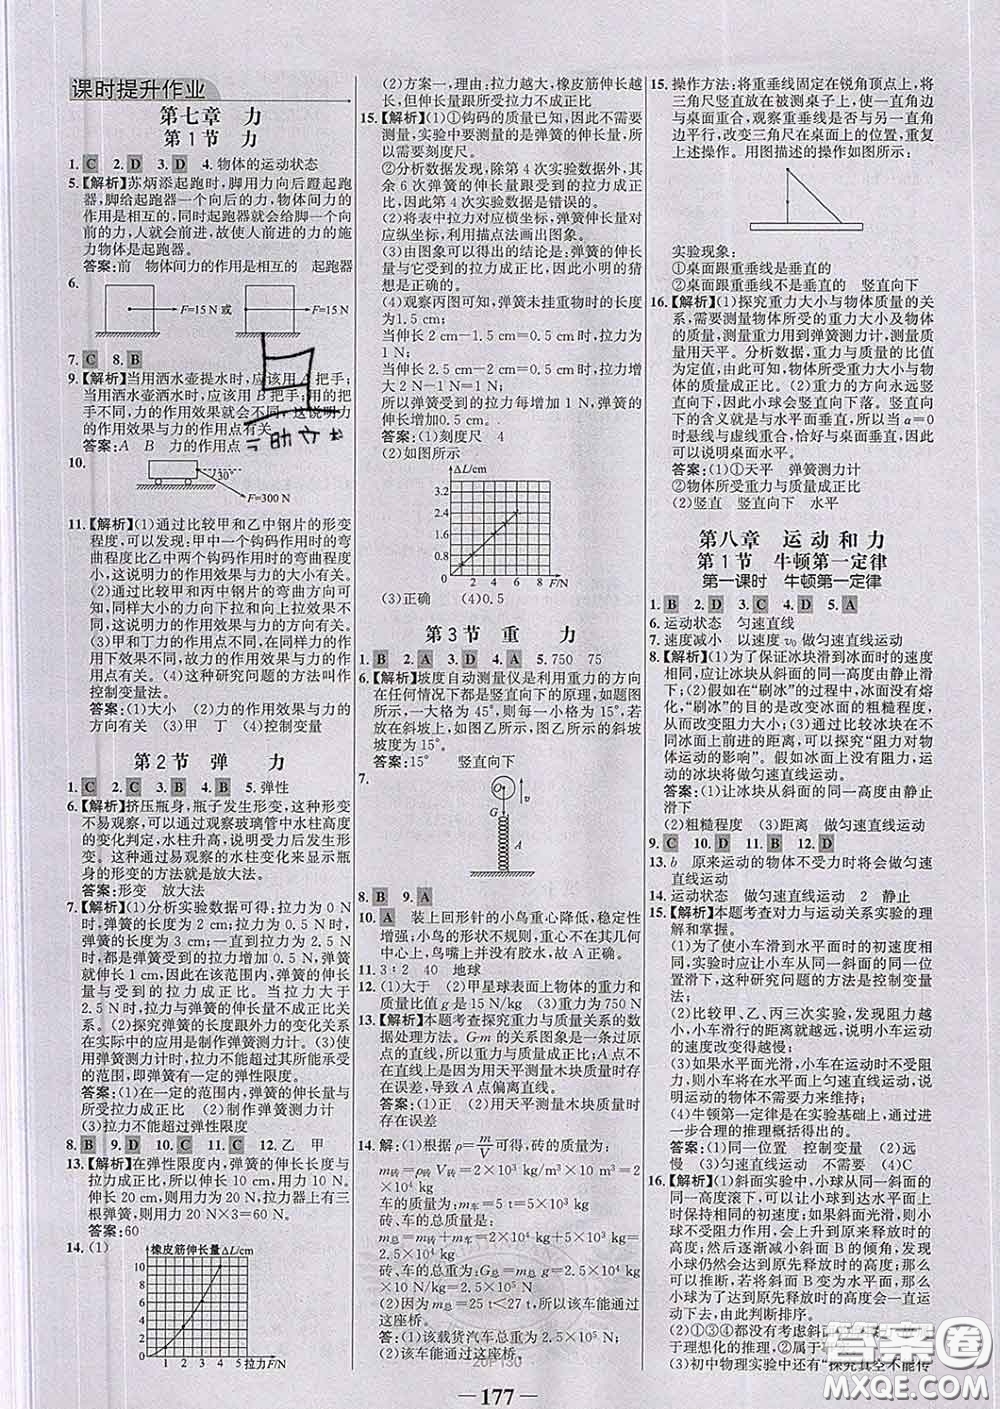 课时提升作业
第七章 力
第1节 力
1. C 2. D 3. D 4. 物体的运动状态
5.【解析】苏炳添起跑时,脚用力向后蹬起跑
器,脚给起跑器一个向后的力,物体间力的
作用是相互的,同时起跑器就会给脚一个向
前的力,人就会前进,故使人前进的力的施
力物体是起跑器。
答案:前 物体间力的作用是相互的 起跑器
6.
F=15 N 或
F=15 N
7. C 8. B
9.【解析】当用洒水壶提水时,应该用A把手;
当用洒水壶洒水时,应该用B把手;用的把
手不同,力的作用效果就会不同,这说明力
的作用效果与力的作用点有关。
答案:A B 力的作用点
10.
30°
F=300 N
11.【解析】(1)通过比较甲和乙中钢片的形变
程度,可以发现:甲中一个钩码作用时的弯
曲程度比乙中两个钩码作用时的弯曲程度
小,这说明力的作用效果与力的大小有关。
(2)通过比较甲和丙中钢片的弯曲方向可
知,同样大小的力向下拉和向上拉的效果
不同,这说明力的作用效果与力的方向有
关。(3)甲和丁力的作用点不同,在同样大
小力的作用下,钢片的形变效果不同,因此
说明力的作用效果与力的作用点有关。(4)这种研究问题的方法叫作
控制变量法。
答案:(1)大小 (2)力的作用效果与力的
方向有关 (3)甲 丁 (4)控制变量
第2节 弹 力
1. C 2. C 3. B 4. B 5. 弹性
6.【解析】挤压瓶身,瓶子发生形变,这种形变
不易观察,可以观察玻璃管中水柱高度
的变化判定,水柱升高,说明受力后发生
形变。这种通过易观察的水柱变化来显示瓶
身的形变的方法就是放大法。
答案:形变 放大法
7.【解析】(1)分析实验数据可得:拉力为0 N
时,弹簧的长度为2 cm;拉力为0.5 N时,
弹簧的长度为3 cm;一直到拉力为2.5 N
时,都是弹簧受到的拉力每增加0.5 N,弹
簧伸长1 cm,因此在该范围内,弹簧的伸长
量与所受拉力成正比。当拉力大于
2.5 N时,拉力与弹簧的伸长量不成正比关
系。(2)探究弹簧的长度跟外力的变化关系
在实际中的应用是制作弹簧测力计。(3)使
用弹簧测力计时,拉力不能超过其所能承受
的范围,即弹簧有一定的弹性限度。
答案:(1)在一定的范围内,弹簧伸长量与
所受拉力成正比 (2)制作弹簧测力计
(3)拉力不能超过弹性限度
8. B 9. D 10. C 11. C 12. 乙 甲
13.【解析】在弹性限度内,弹簧的伸长长度与
拉力成正比,所以伸长10 cm,用力10 N。
伸长20 cm,则用力20 N,拉力器上有三
根弹簧,则用力为20 N×3=60 N。
答案:60
14. (1)
橡皮筋伸长量ΔL/cm
10
8
6
4
2
0 1 2 3 4 5 拉力F/N
(2)方案一,理由:拉力越大,橡皮筋伸长越
长,但伸长量跟所受拉力不成正比
15.【解析】(1)①钩码的质量已知,因此不需要
测量,实验中要测量的是弹簧的伸长量,所
以需要刻度尺。
②分析数据发现,除第4次实验数据外,其
余6次弹簧的伸长量跟受到的拉力成正
比,因此第4次实验数据是错误的。
(2)将表中拉力对应横坐标,弹簧伸长量对
应纵坐标,利用描点法画出图象。
(3)由图象可以得出的结论是:弹簧的伸长
量与它受到的拉力成正比,因此小明的猜
想是正确的。
(4)观察丙图可知,弹簧未挂重物时的长度
为1.5 cm;
当伸长2 cm-1.5 cm=0.5 cm时,拉力为
1 N;
当伸长2.5 cm-2 cm=0.5 cm时,拉力增
大2 N-1 N=1 N;
所以弹簧受到的拉力每增加1 N,弹簧伸
长量增加0.5 cm。
答案:(1)刻度尺 4
(2)如图所示
ΔL/cm
3.2
2.4
1.6
0.8
0 2 4 6 8 F/N
(3)正确 (4)0.5
第3节 重 力
1. B 2. A 3. D 4. A 5. 750 75
6.【解析】坡度自动测量仪是利用重力的方向
在任何情况下都是竖直向下的原理,如题图
甲所示,一大格为45°,则一小格为15°。故
若在斜坡上,如图乙所示,如图乙所示的斜坡
坡度为15°。
答案:15° 竖直向下
7.
O
v
G
A
8. B 9. A
10. A 装上回形针的小鸟重心降低,稳定性
增强;小鸟的形状不规则,重心不在其几何中
心,鸟嘴上并没有胶水,故A正确。
11. 3∶2 40 地球
12. (1)大于 (2)甲星球表面上物体的重力和
质量比值g是15 N/kg (3)重力为750 N
13.【解析】本题考查探究重力与质量关系的数
据处理方法。G-m的关系图象是一条过原
点的直线,所以重力与质量成正比;A点不
在直线上是因为用天平测量木块质量时存
在误差,导致A点偏离直线。
答案:(1)正 (2)用天平测量木块质量时
存在误差
14. 解:(1)根据ρ=m/V可得,砖的质量为:
m砖=ρ砖V=2×10³ kg/m³×10 m³=
2×10⁴ kg
车的质量为:m车=5 t=5×10³ kg
砖、车的总质量是:
m总=m砖+m车=2×10⁴ kg+5×10³ kg=
2.5×10⁴ kg
砖、车的总重量为:G总=m总g=2.5×10⁴ kg×
10 N/kg=2.5×10⁵ N
(2)因为m总=25 t<27 t,所以该车能通过
这座桥。
答:(1)该载货汽车总重为2.5×10⁵ N;
(2)该车能通过这座桥。
15. 操作方法:将重垂线固定在锐角顶点上,将
三角尺竖直放在被测桌子上,使一直角边
与桌面重合,观察重垂线是否与另一直角
边平行,改变三角尺在桌面上的位置,重复
上述操作。用图描述的操作如图所示:
实验现象:
①桌面跟重垂线是垂直的
②桌面跟重垂线是垂直的 竖直向下
16.【解析】(1)探究重力大小与物体质量的关
系,需要测量物体所受的重力大小及物体的
质量,测量重力用到弹簧测力计,测量质
量用天平。分析数据,重力与质量的比值
为定值,由此可知,物体所受重力的大小与
物体的质量成正比。(2)重力的方向永远竖
直向下,因此小球会竖直向下落。竖直向
下的含义就是与水平面垂直,所以当α=0
时悬线与虚线重合,恰好与桌面垂直,因此
可以说明桌面水平。
答案:(1)①天平 弹簧测力计
②物体所受重力大小与物体的质量成正比
(2)竖直 竖直向下 水平
第八章 运动和力
第1节 牛顿第一定律
第一课时 牛顿第一定律
1. B 2. D 3. C 4. D 5. A
6. 运动状态 匀速直线
7. 速度减小 以速度v₀做匀速直线运动
8.【解析】(1)为了保证冰块滑到冰面时的速度
相同,应让冰块从斜面的同一高度由静止滑
下;(2)假如在“刷冰”的过程中,冰面没有熔
化,“刷冰”的目的是改变冰面的粗糙程度,
从而改变阻力大小;(3)通过比较冰块在不
同冰面上前进的距离,可以探究“阻力对物
体运动的影响”。如果冰面上没有阻力,那
么,冰块将做匀速直线运动。
答案:(1)让冰块从斜面的同一高度由静止
滑下
(2)粗糙程度 (3)距离 做匀速直线运动
9. C 10. D 11. B 12. D
13. b 原来运动的物体不受力时将会做匀速
直线运动
14. 运动状态 做匀速直线运动 2 静止
15.【解析】本题考查对力与运动关系实验的理
解和掌握。
(1)为了使小车滑到水平面时的初速度相
同,实验时应让小车从同一斜面的同一位
置下滑,这种研究问题的方法是控制变量
法。
(2)比较甲、乙、丙三次实验,发现阻力越
小,小车滑行的距离就越远,说明小车运动
的速度改变得越慢;
(3)如果水平面光滑,小车在运动时不受阻
力,则小车将在水平面上做匀速直线运动,
即运动不需要力来维持;
(4)牛顿第一定律是在实验基础上,通过进
一步合理的推理概括得出的。
答案:(1)同一位置 控制变量 (2)远
慢 (3)匀速直线运动 不需要 (4)C
16.【解析】(1)斜面实验中,小球从同一斜面的
同一高度滚下,可以使小球到达水平面上
时保持相同的初速度,实验中,如果小球不
受阻力作用,会上升到原来释放时的高
度;然后逐渐减小斜面B的倾角,发现
小球仍会达到原来释放时的高度,我们
可以推断,若将斜面B变为水平面,小球
为了达到原先释放时的高度将一直运
动下去,由此判断排序。
(2)①③④都没有考虑斜面
于理想化的推理,②属于
(3)初中物理实验中还有“探究真空不能传
20P130
— 177 —
答案圈
MXQE.COM